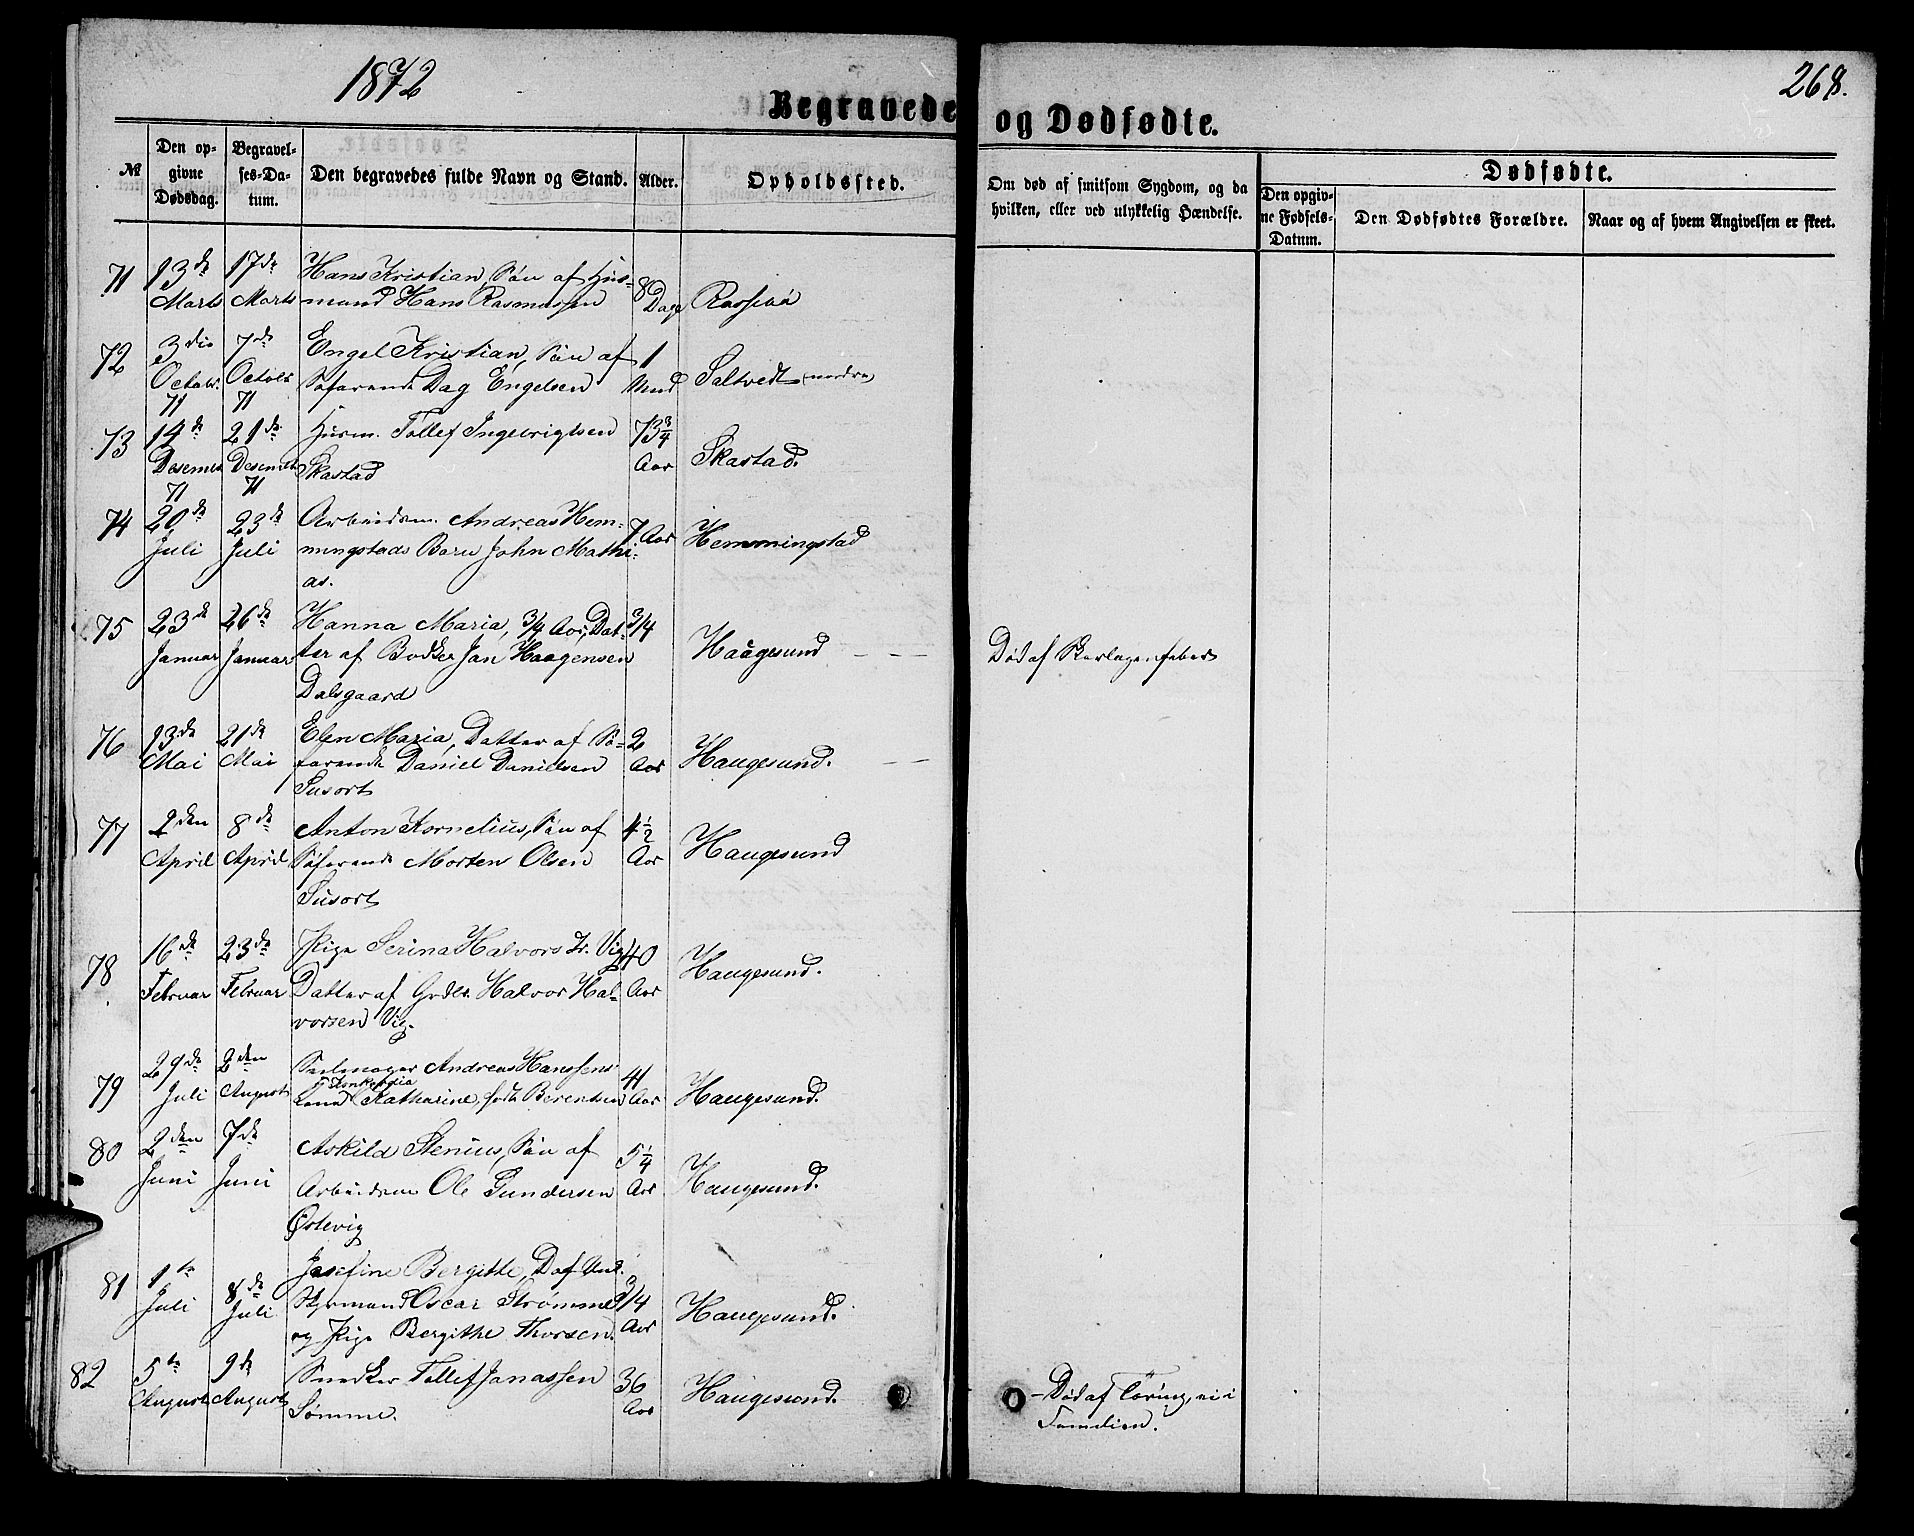 1872
268.
Begravede og Dødfødte.
№
Den opgivne Dødsdag.
Begravelses-Datum.
Den begravedes fulde Navn og Stand.
Alder.
Opholdssted.
Om død af smitsom Sygdom, og da hvilken, eller ved ulykkelig Hændelse.
Dødfødte.
Den opgivne Fødsels-Datum.
Den Dødfødtes Forældre.
Naar og af hvem Angivelsen er skeet.
71 13de Marts 17de Marts Hans Kristian, Søn af Hus-
mand Hans Rasmussen 8 Dage
72 3die Octobr. 71 7de Octobr 71 Engel Kristian, Søn af
Søfarende Dag Engelsen 1 Mnd Saltvedt nordre
73 14de Desember 71 21de Desember 71 Husm. Tollef Ingebrigtsen
Skastad 73 3/4 Aar Skastad.
74 20de Juli 23de Juli Arbeidsm. Andreas Hem-
mingstads Barn John Mathi-
as. 7 Aar Hemmingstad
75 23de Januar 26de Januar Hanna Maria, 3/4 Aar, Dat-
ter af Bødker Jan Haagensen
Dalsgaard 3/4 Haugesund — — Død af Skarlagensfeber
76 13de Mai 21de Mai Elen Maria, Datter af Sø-
farende Daniel Danielsen
Susort 2 Aar Haugesund. — —
77 2den April 8de April Anton Kornelius, Søn af
Søfarende Morten Olsen
Susort 4 1/2 Aar Haugesund
78 16de Februar 23de Februar Pige Serina Halvors Dr. Vig
Datter af Grdbr. Halvor Hal-
vorsen Vig. 40 Aar Haugesund.
79 29de Juli 2den August Seilmager Andreas Hanssens
Kone Katharine, født Berentsen 41 Aar Haugesund.
80 2den Juni 7de Juni Askild Stenius, Søn af
Arbeidsm Ole Gundersen
Østevig 5 1/4 Aar Haugesund.
81 1ste Juli 8de Juli Josefine Bergitte, D af Und.
Styrmand Oscar Strømme
og Pige Bergithe Thorsen. 3/4 Aar Haugesund.
82 5te August 9de August Snedker Tollef Janassen
Sømme. 36 Aar Haugesund. — Død af Tæring, ei i
Familien.